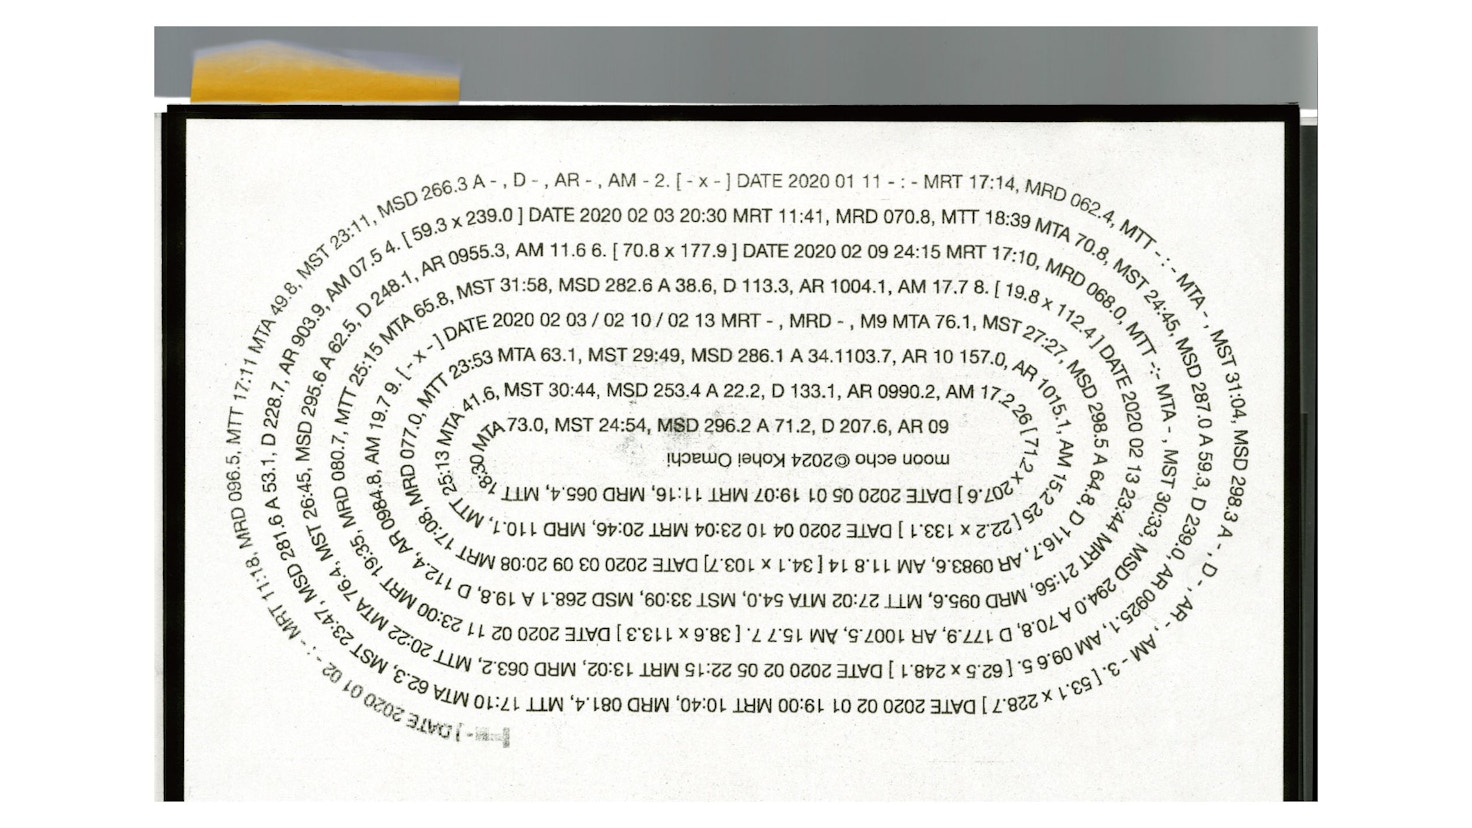 - ] DATE 2020 01 02 - : - MRT 11:18, MRD 096.5, MTT 17:11 MTA 49.8, MST 23:11, MSD 266.3 A - , D - , AR - , AM - 2. [ - x - ] DATE 2020 01 11 - : - MRT 17:14, MRD 062.4, MTT - : - MTA - , MST 31:04, MSD 298.3 A - , D - , AR - , AM - 3. [ 53.1 x 228.7 ] DATE 2020 02 01 19:00 MRT 10:40, MRD 081.4, MTT 17:10 MTA 62.3, MST 23:47, MSD 281.6 A 53.1, D 228.7, AR 903.9, AM 07.5 4. [ 59.3 x 239.0 ] DATE 2020 02 03 20:30 MRT 11:41, MRD 070.8, MTT 18:39 MTA 70.8, MST 24:45, MSD 287.0 A 59.3, D 239.0, AR 0925.1, AM 09.6 5. [ 62.5 x 248.1 ] DATE 2020 02 05 22:15 MRT 13:02, MRD 063.2, MTT 20:22 MTA 76.4, MST 26:45, MSD 295.6 A 62.5, D 248.1, AR 0955.3, AM 11.6 6. [ 70.8 x 177.9 ] DATE 2020 02 09 24:15 MRT 17:10, MRD 068.0, MTT -:- MTA - , MST 30:33, MSD 294.0 A 70.8, D 177.9, AR 1007.5, AM 15.7 7. [ 38.6 x 113.3 ] DATE 2020 02 11 23:00 MRT 19:35, MRD 080.7, MTT 25:15 MTA 65.8, MST 31:58, MSD 282.6 A 38.6, D 113.3, AR 1004.1, AM 17.7 8. [ 19.8 x 112.4 ] DATE 2020 02 13 23:44 MRT 21:56, MRD 095.6, MTT 27:02 MTA 54.0, MST 33:09, MSD 268.1 A 19.8, D 112.4, AR 0984.8, AM 19.7 9. [ - x - ] DATE 2020 02 03 / 02 10 / 02 13 MRT - , MRD - , M9 MTA 76.1, MST 27:27, MSD 298.5 A 64.8, D 116.7, AR 0983.6, AM 11.8 14 [ 34.1 x 103.7] DATE 2020 03 09 20:08 MRT 17:08, MRD 077.0, MTT 23:53 MTA 63.1, MST 29:49, MSD 286.1 A 34.1103.7, AR 10 157.0, AR 1015.1, AM 15.2 25 [ 22.2 x 133.1 ] DATE 2020 04 10 23:04 MRT 20:46, MRD 110.1, MTT 25:13 MTA 41.6, MST 30:44, MSD 253.4 A 22.2, D 133.1, AR 0990.2, AM 17.2 26 [ 71.2 x 207.6 ] DATE 2020 05 01 19:07 MRT 11:16, MRD 065.4, MTT 18:30 MTA 73.0, MST 24:54, MSD 296.2 A 71.2, D 207.6, AR 09
moon echo ©2024 Kohei Omachi